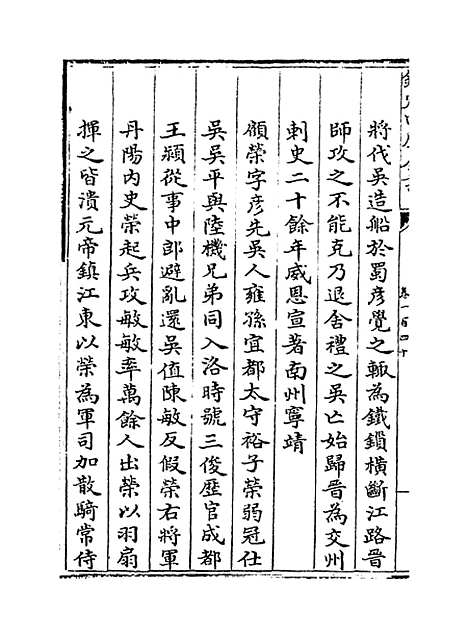 卷一百四十
將代吳造船於蜀彦覺之輙為鐵鎖横斷江路晉
師攻之不能克乃退舍禮之吳亡始歸晉為交州
刺史二十餘年威恩宣著南州寧靖
顧榮字彦先吳人雍孫宜都太守裕子榮弱冠仕
吳吳平與陸機兄弟同入洛時號三俊歴官成都
王頴從事中郎避亂還吳值陳敏反假榮右將軍
丹陽内史榮起兵攻敏敏率萬餘人出榮以羽扇
揮之皆潰元帝鎮江東以榮為軍司加散騎常侍